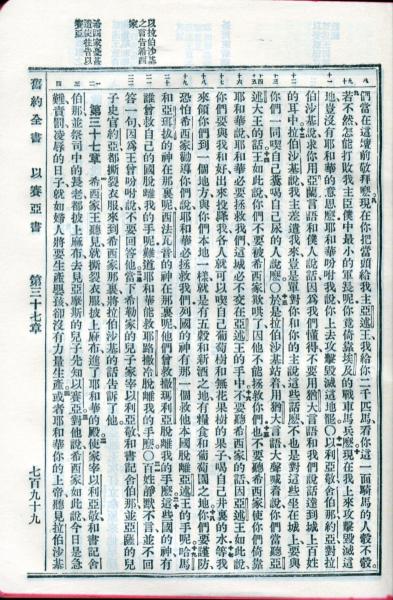 以拉伯沙基
之言告希西
家
希西家憂甚
遣使往告以
賽亞
們當在這壇前敬拜麽現在你把當頭給我主亞述王我給你二千匹馬看你這一面騎馬的人彀不彀
若不然怎能打敗我主臣僕中最小的軍長呢你竟倚靠埃及的戰車馬兵麽現在我上來攻擊毀滅這
地豈沒有耶和華的意思麽耶和華吩咐我說你上去攻擊毀滅這地罷○以利亞敬舍伯那約亞對拉
伯沙基說求你用亞蘭言語和僕人說話因爲我們懂得不要用猶大言語和我們說話達到城上百姓
的耳中拉伯沙基說我主差遣我來豈是單對你和你的主說這些話麽不也是對這些坐在城上要與
你們一同喫自己糞喝自己尿的人說麽○於是拉伯沙基站着用猶大言語大聲喊着說你們當聽亞
述大王的話王如此說你們不要被希西家欺哄了因他不能拯救你們也不要聽希西家使你們倚靠
耶和華說耶和華必要拯救我們這城必不交在亞述王的手中不要聽希西家的話因亞述王如此說
你們要與我和好出來投降我各人就可以喫自己葡萄樹和無花果樹的果子喝自己井裏的水等我
來領你們到一個地方與你們本地一樣就是有五穀和新酒之地有糧食和葡萄園之地你們要謹防
恐怕希西家勸導你們說耶和華必拯救我們列國的神有那一個救他本國脫離亞述王的手呢哈馬
和亞珥拔的神在那裏呢西法瓦音的神在那裏呢他們曾救撒瑪利亞脫離我的手麽這些國的神有
誰曾救自己的國脫離我的手呢難道耶和華能救耶路撒冷脫離我的手麽○百姓靜默不言並不回
答一句因爲王曾吩咐說不要回答他當下希勒家的兒子家宰以利亞敬和書記舍伯那並亞薩的兒
子史官約亞都撕裂衣服來到希西家那裏將拉伯沙基的話告訴了他
第三十七章 希西家王聽見就撕裂衣服披上麻布進了耶和華的殿使家宰以利亞敬和書記舍
伯那並祭司中的長老都披上麻布去見亞摩斯的兒子先知以賽亞對他說希西家如此說今日是急
難責罰凌辱的日子就如婦人將要生產嬰孩卻沒有力量生產或者耶和華你的上帝聽見拉伯沙基
舊約全書 以賽亞書 第三十七章 七百九十九